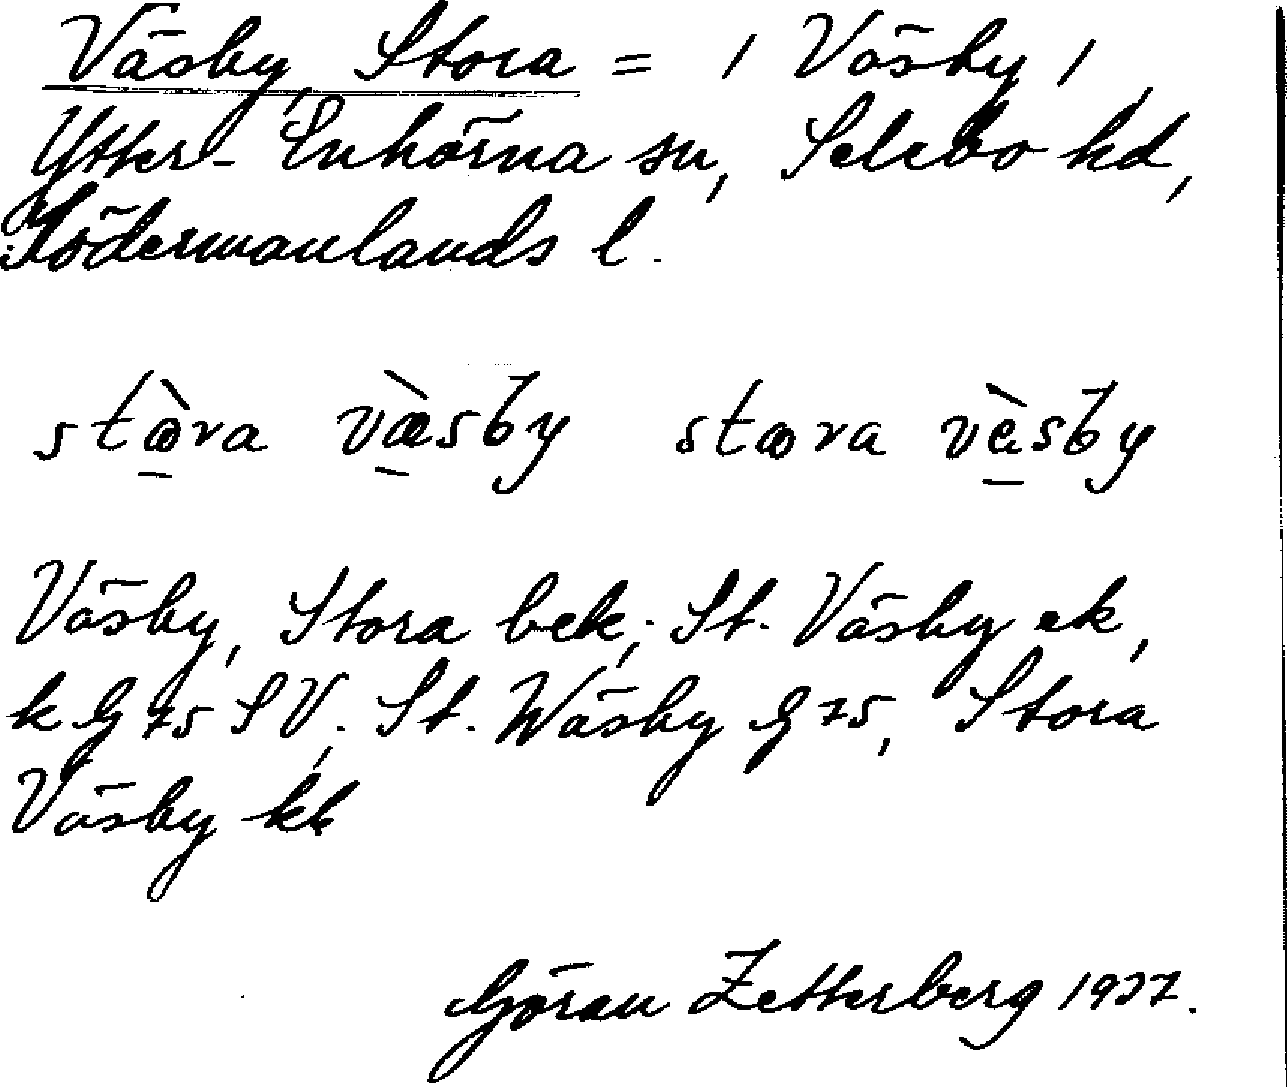 Väsby, Stora = 1 Väsby 1,
Ytter-Enhörna sn, Selebo hd,
Södermanlands l.
stò̱ra væ̱̀sby stora vè̱sby
Väsby, Stora bek; St. Väsby ek,
k G 75 SV; St. Wäsby G 75, Stora
Väsby kb
Göran Zetterberg 1937.